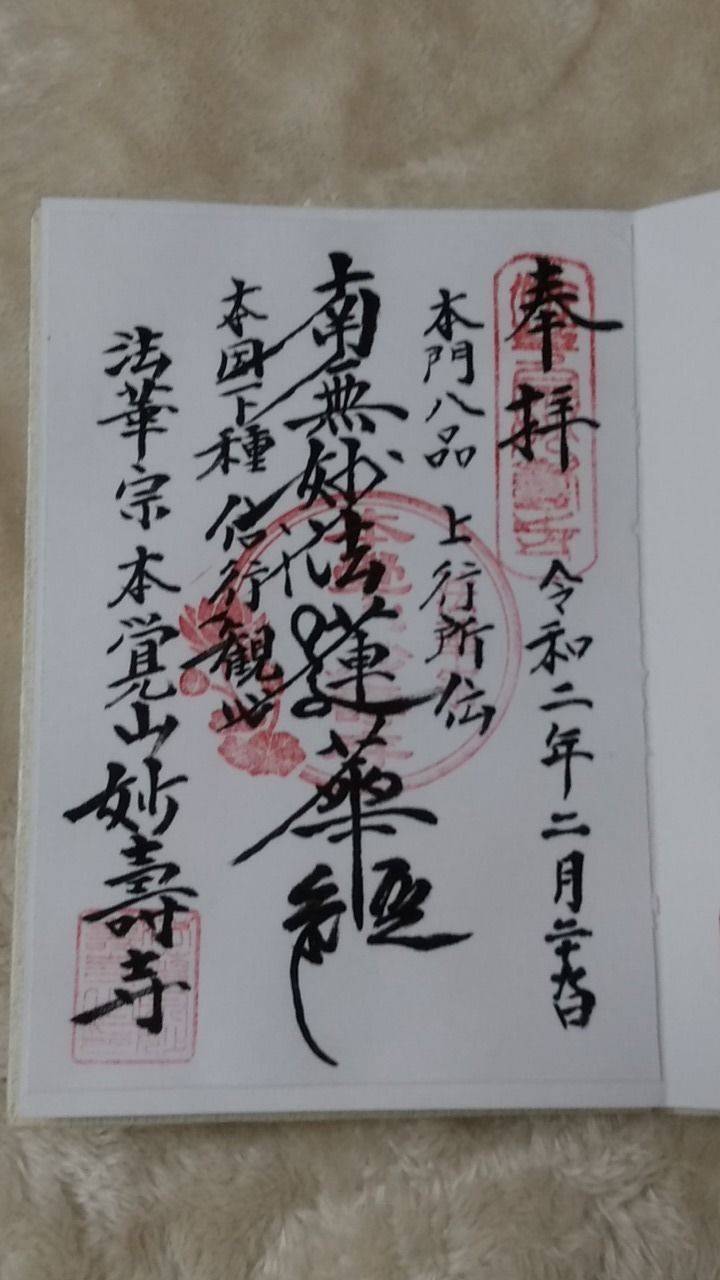 奉拝
令和二年二月二十九日
本門八品 上行所伝
南無妙法蓮華経
本因下種 信行観此
法華宗 本覚山 妙壽寺